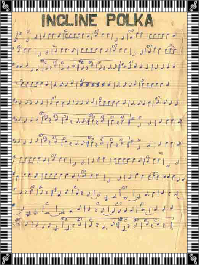 INCLINE POLKA